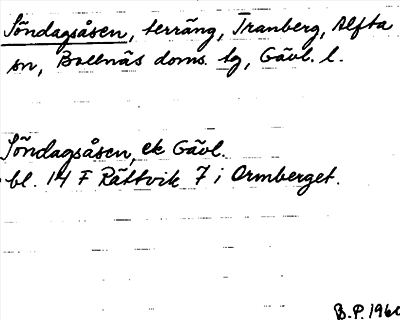 Söndagsåsen, terräng, Tranberg, Alfta
sn, Bollnäs doms. tg, Gävl. l.
Söndagsåsen, ek Gävl.
bl. 14 F Rättvik 7 i Ormberget.
B.P. 1960